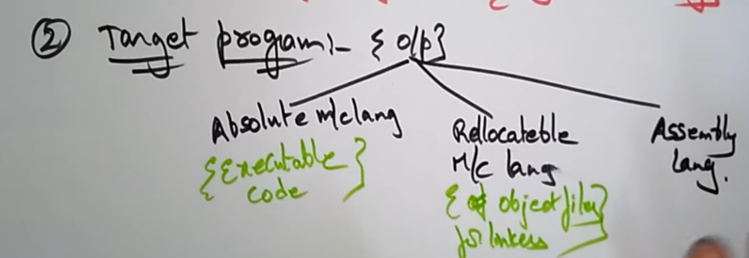 ② Target program:- { o/p }
Absolute m/c lang
{ Executable code }
Rellocateble M/c lang
{ object files for linkers }
Assembly Lang.